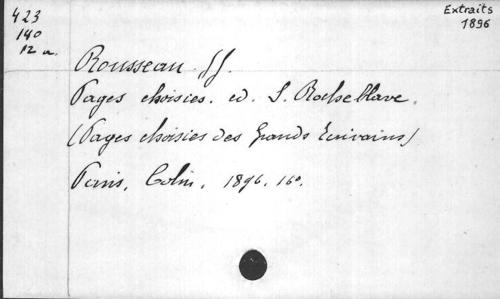 423
140
12 a.
Extraits
1896
Rousseau JJ.
Pages choisies. ed. S. Rocheblave.
(Pages choisies des Grands Ecrivains)
Paris, Colin, 1896. 16º.